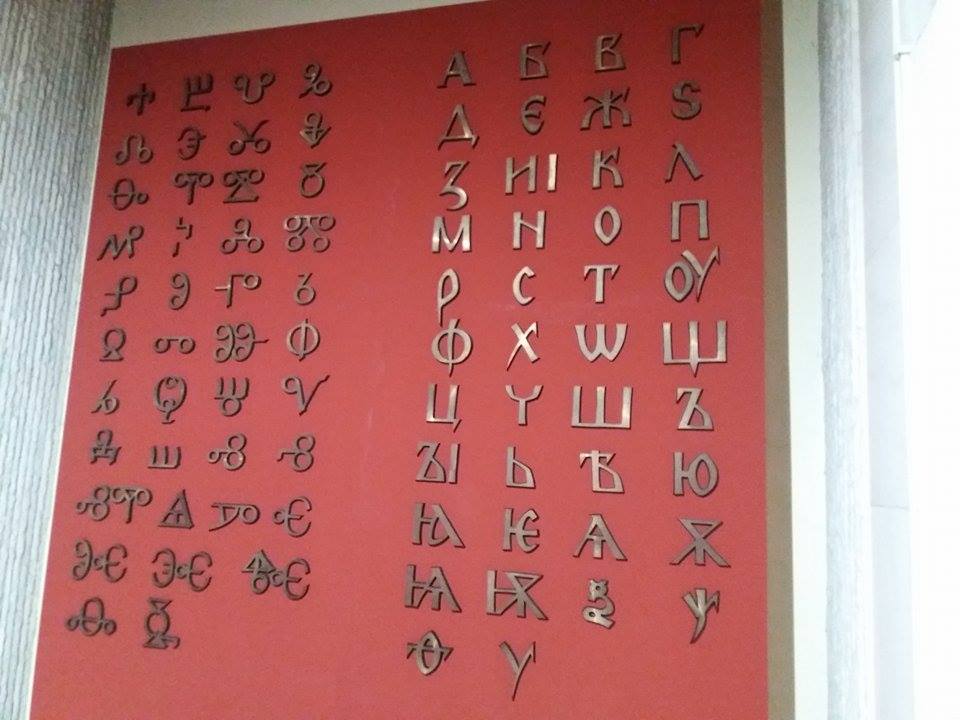 Ⰰ Ⰱ Ⰲ Ⰳ
Ⰴ Ⰵ Ⰶ Ⰷ
Ⰸ Ⰺ Ⰹ Ⰻ
Ⰼ Ⰽ Ⰾ Ⰿ
Ⱀ Ⱁ Ⱂ Ⱃ
Ⱄ Ⱅ Ⱆ Ⱇ
Ⱈ Ⱉ Ⱋ Ⱌ
Ⱍ Ⱎ Ⱏ Ⱐ
ⰟⰊ Ⱑ Ⱓ Ⱔ
Ⱘ Ⱗ Ⱙ
Ⱚ Ⱛ
А Б В Г
Д Є Ж Ѕ
З И І К Л
М Н О П
Р С Т ОУ
Ф Х Ѡ Щ
Ц Ү Ш Ъ
ЪІ Ь Ѣ Ю
Ꙗ Ѥ Ѧ Ѫ
Ѩ Ѭ Ѯ Ѱ
Ѳ Ѵ